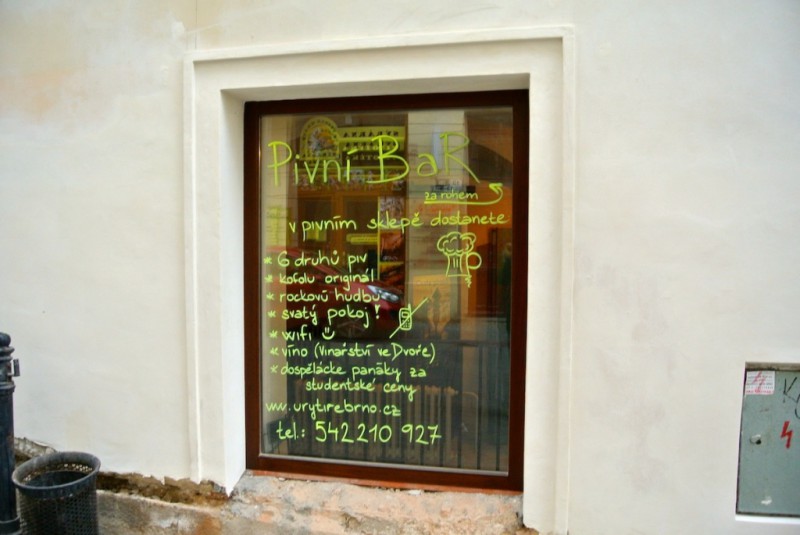 Pivní BaR
za rohem
v pivním sklepě dostanete
* 6 druhů piv
* kofolu originál
* rockovú hudbu
* svatý pokoj!
* wifi
* víno (Vinařství ve Dvoře)
* dospělácke panáky za
studentské ceny
www.urytirebrno.cz
tel.: 542 210 927